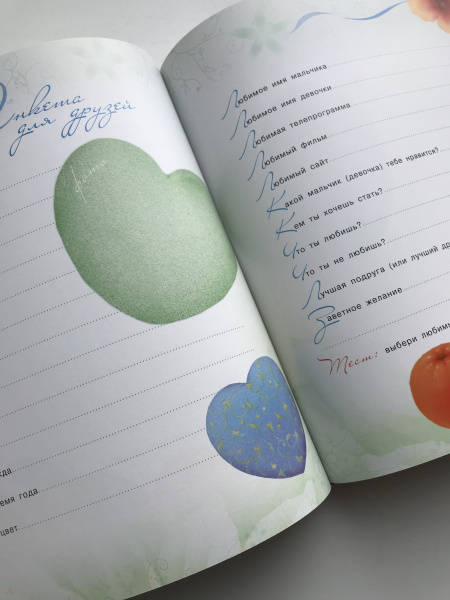 Анкета
для друзей
фото
жда
емя года
цвет
Любимое имя мальчика
Любимое имя девочки
Любимая телепрограмма
Любимый фильм
Любимый сайт
Какой мальчик (девочка) тебе нравится?
Кем ты хочешь стать?
Что ты любишь?
Что ты не любишь?
Лучшая подруга (или лучший др
Заветное желание
Тест: выбери любимы